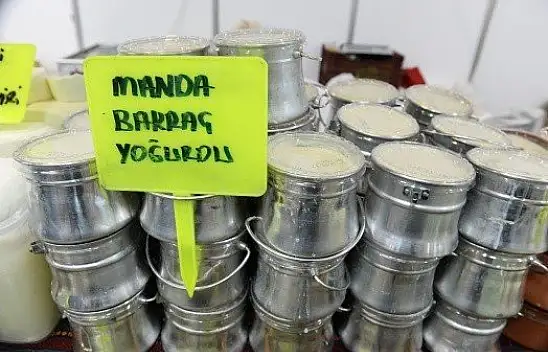 MANDA
BAKRAÇ
YOĞURDU